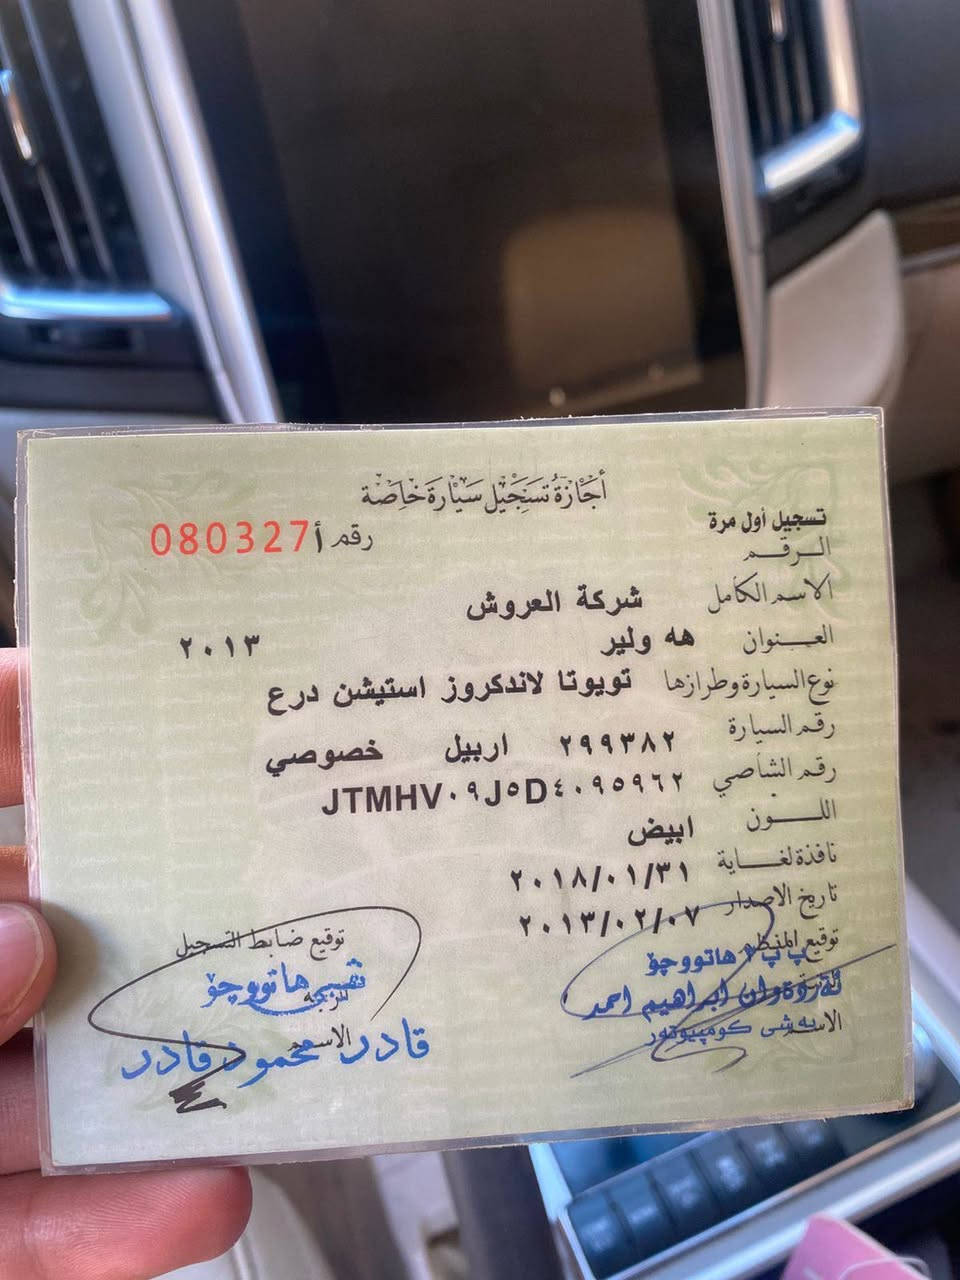 أجازة تسجيل سيارة خاصة
تسجيل أول مرة
رقم أ 080327
الرقم
الاسم الكامل شركة العروش
العنوان هه ولير ٢٠١٣
نوع السيارة وطرازها تويوتا لاندكروز استيشن درع
رقم السيارة ٢٩٩٣٨٢ اربيل خصوصي
رقم الشاصي JTMHV٠٩J٥D٤٠٩٥٩٦٢
اللون ابيض
نافذة لغاية ٢٠١٨/٠١/٣١
تاريخ الاصدار ٢٠١٣/٠٢/٠٧
توقيع المنظم توقيع ضابط التسجيل
پ.پ هاتووچۆ
هاتووچۆ
ابراهيم احمد
الاسم بەشی کومپیوتەر
الاسم قادر محمود قادر